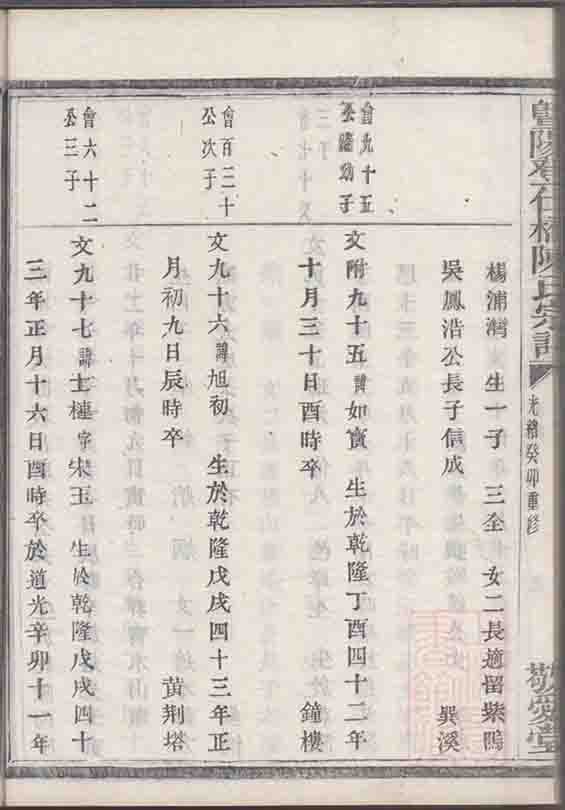 暨陽仁橋陳氏宗譜 光緒癸卯重修 敬愛堂
楊浦灣 生一子 三全 女二長適留紫塢
吳鳳浩公長子信成 吳溪
會九十五
公繼幼子
文附九十五諱如寶 生於乾隆丁酉四十二年
十月三十日酉時卒 鐘樓
會百三十
公次子
文九十六諱旭初 生於乾隆戊戌四十三年正
月初九日辰時卒 黃荆塔
會六十二
公三子
文九十七諱士槤字宋玉 生於乾隆戊戌四十
三年正月十六日酉時卒於道光辛卯十一年